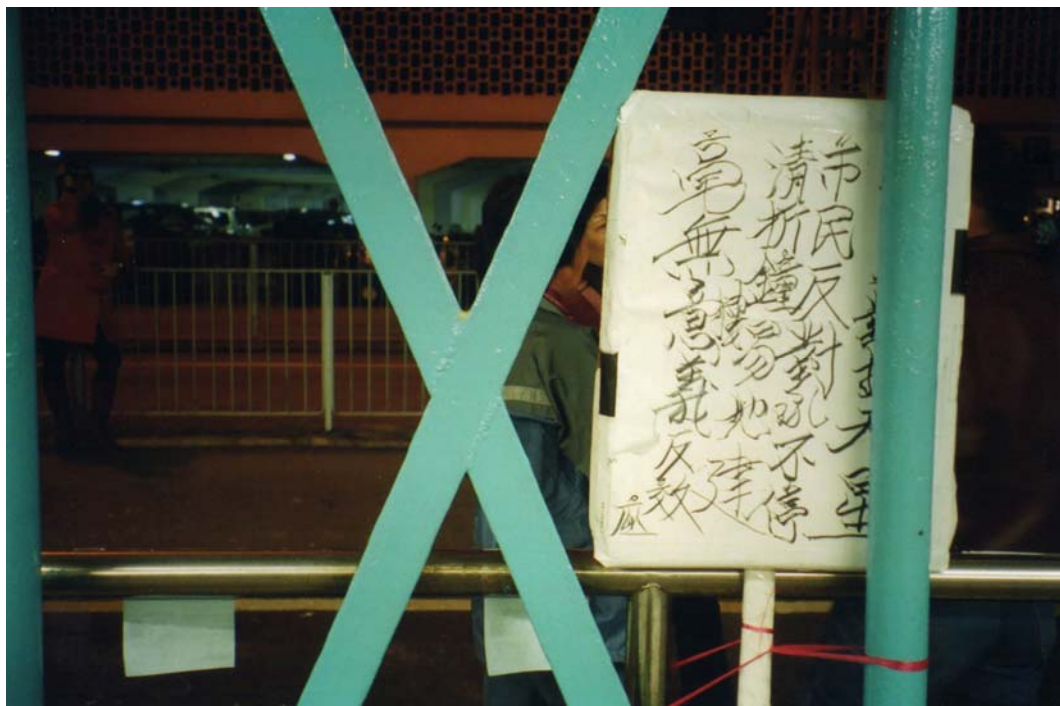 市民反對永不停
清折鐘樓另地建
毫無意義反效